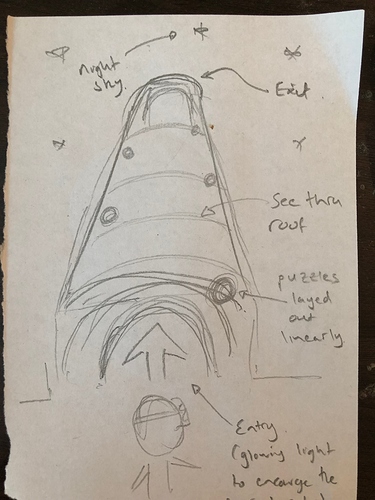 night
sky.
Exit.
See thru
roof
puzzles
layed
out
linearly.
Entry
(glowing light
to encourage the